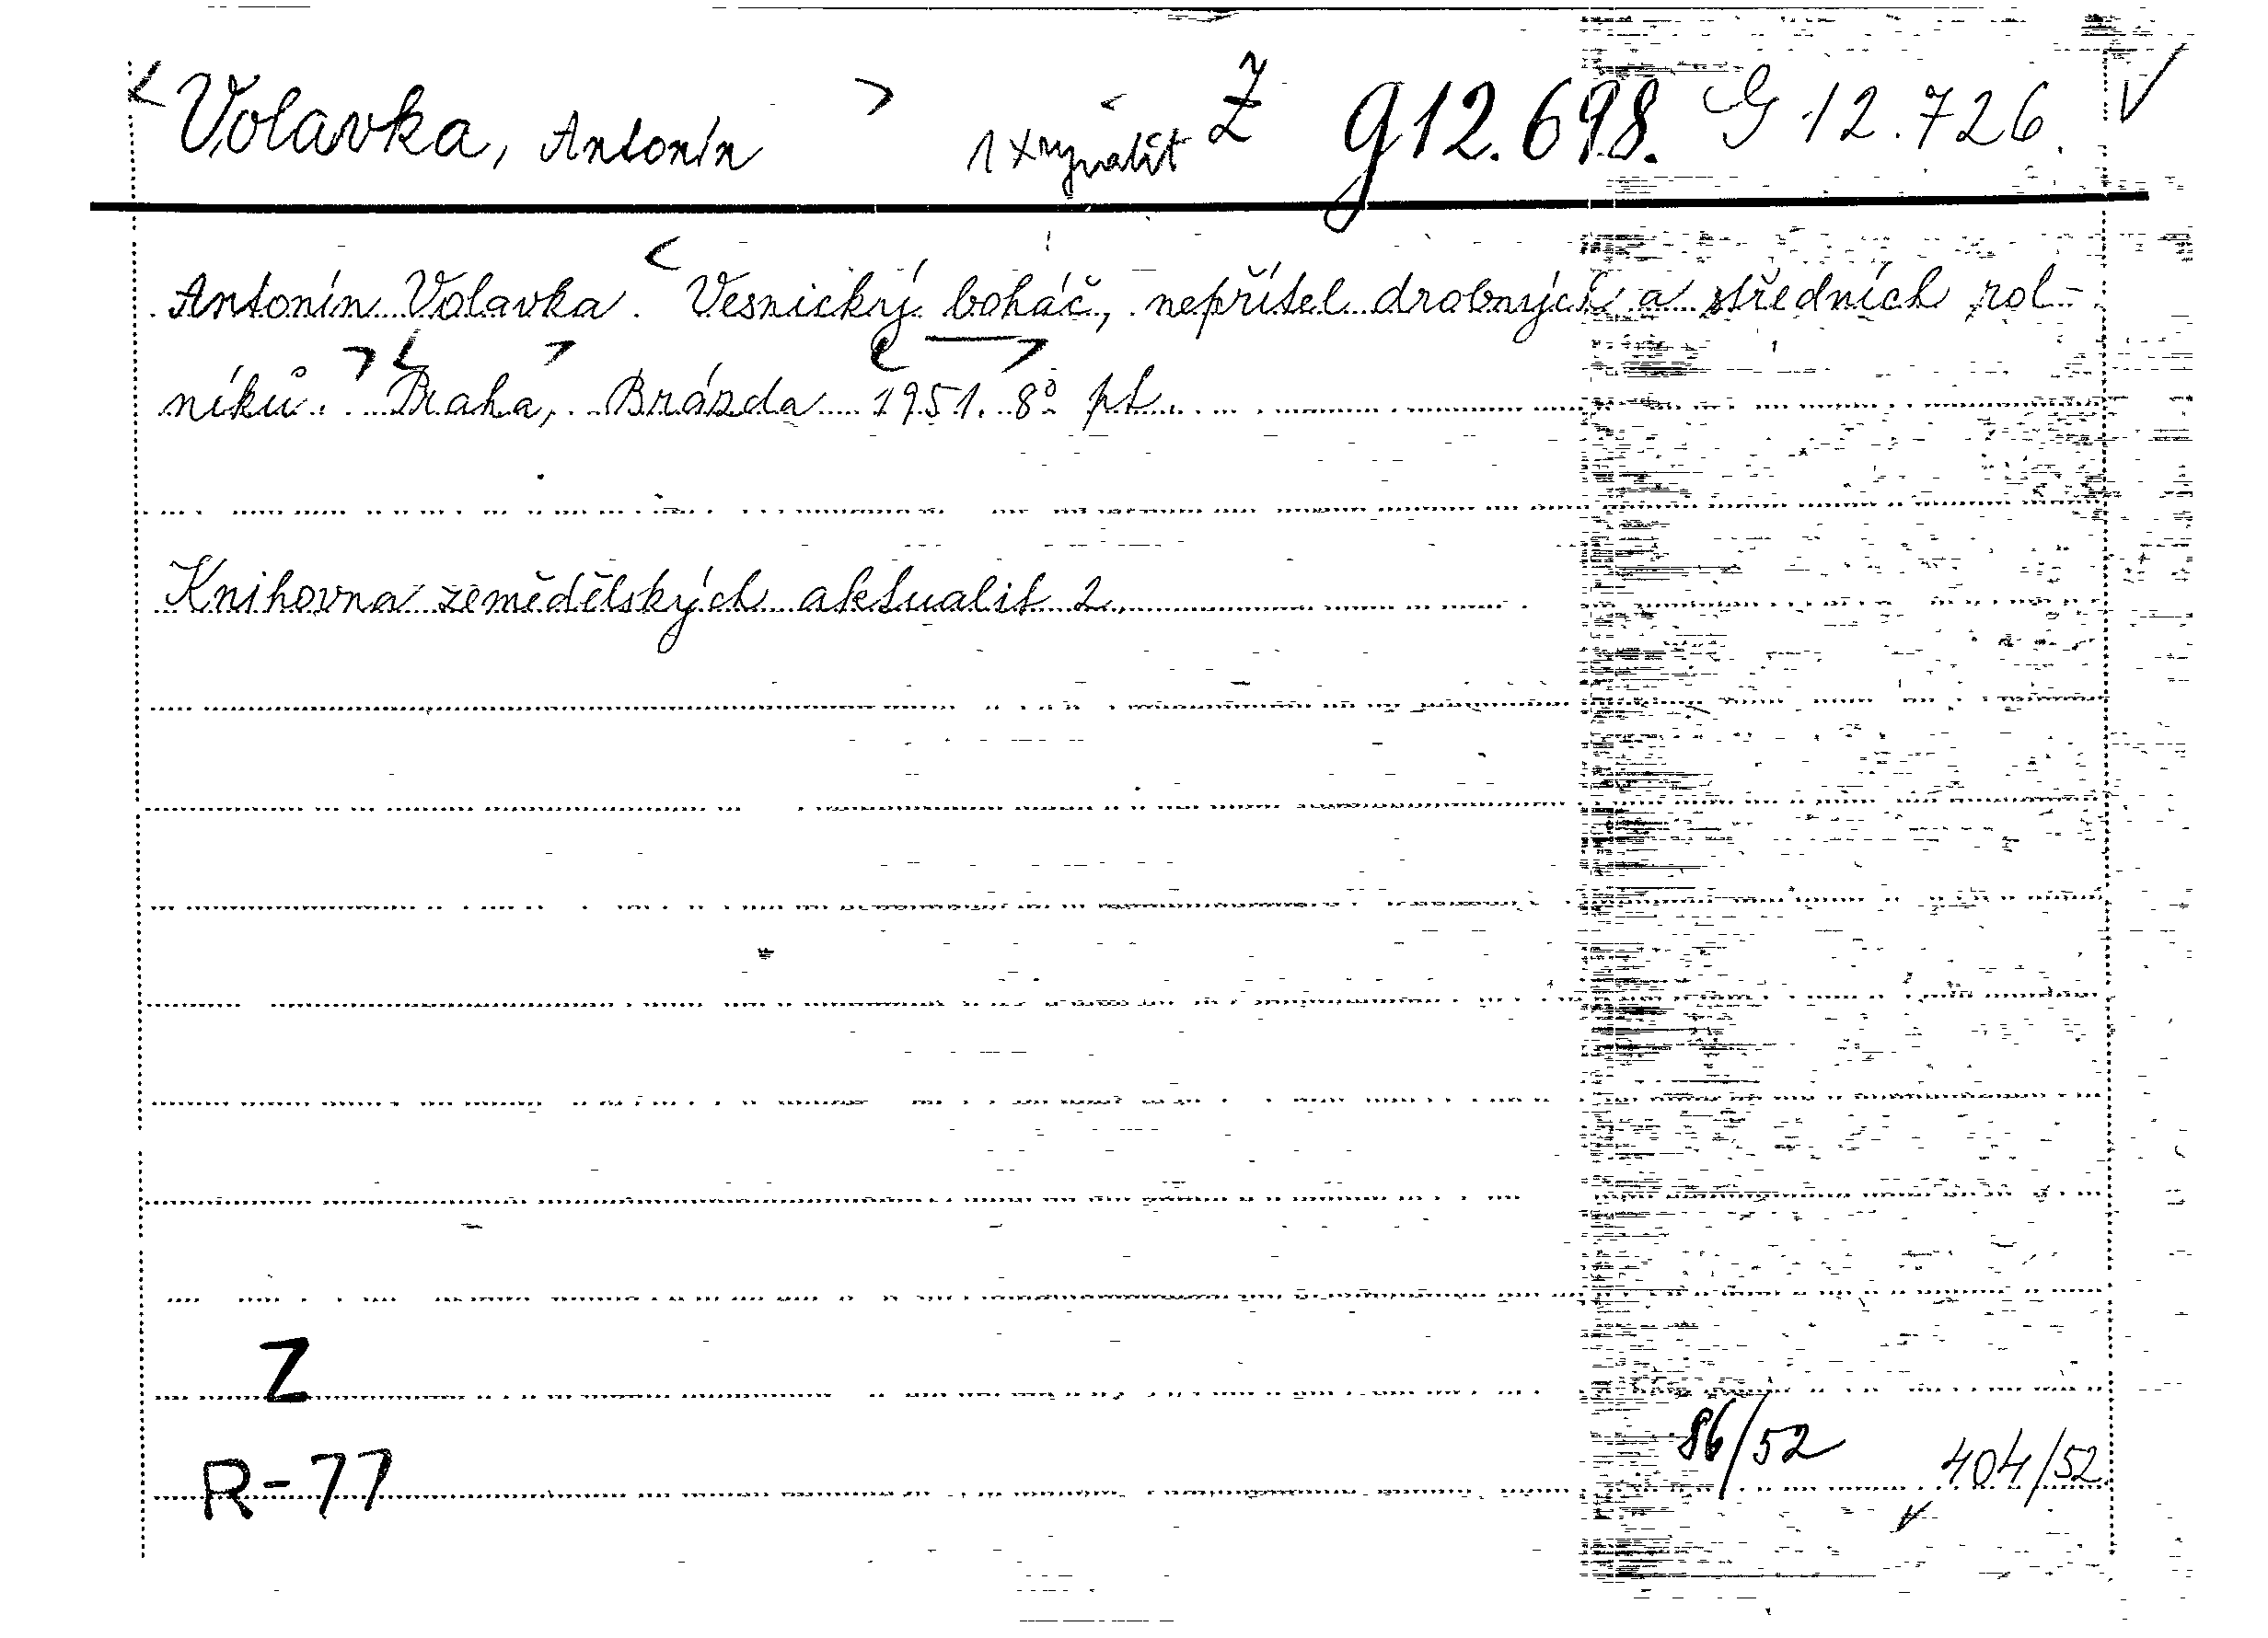 <Volavka, Antonín > 1x Ž g12.698. G 12.726. √
Antonín Volavka. <Vesnický boháč, nepřítel drobných a středních rol-
níků. > <Praha, > Brázda <1951. > 8° pt.
Knihovna zemědělských aktualit 2.
Z
86/52 404/52
R-77